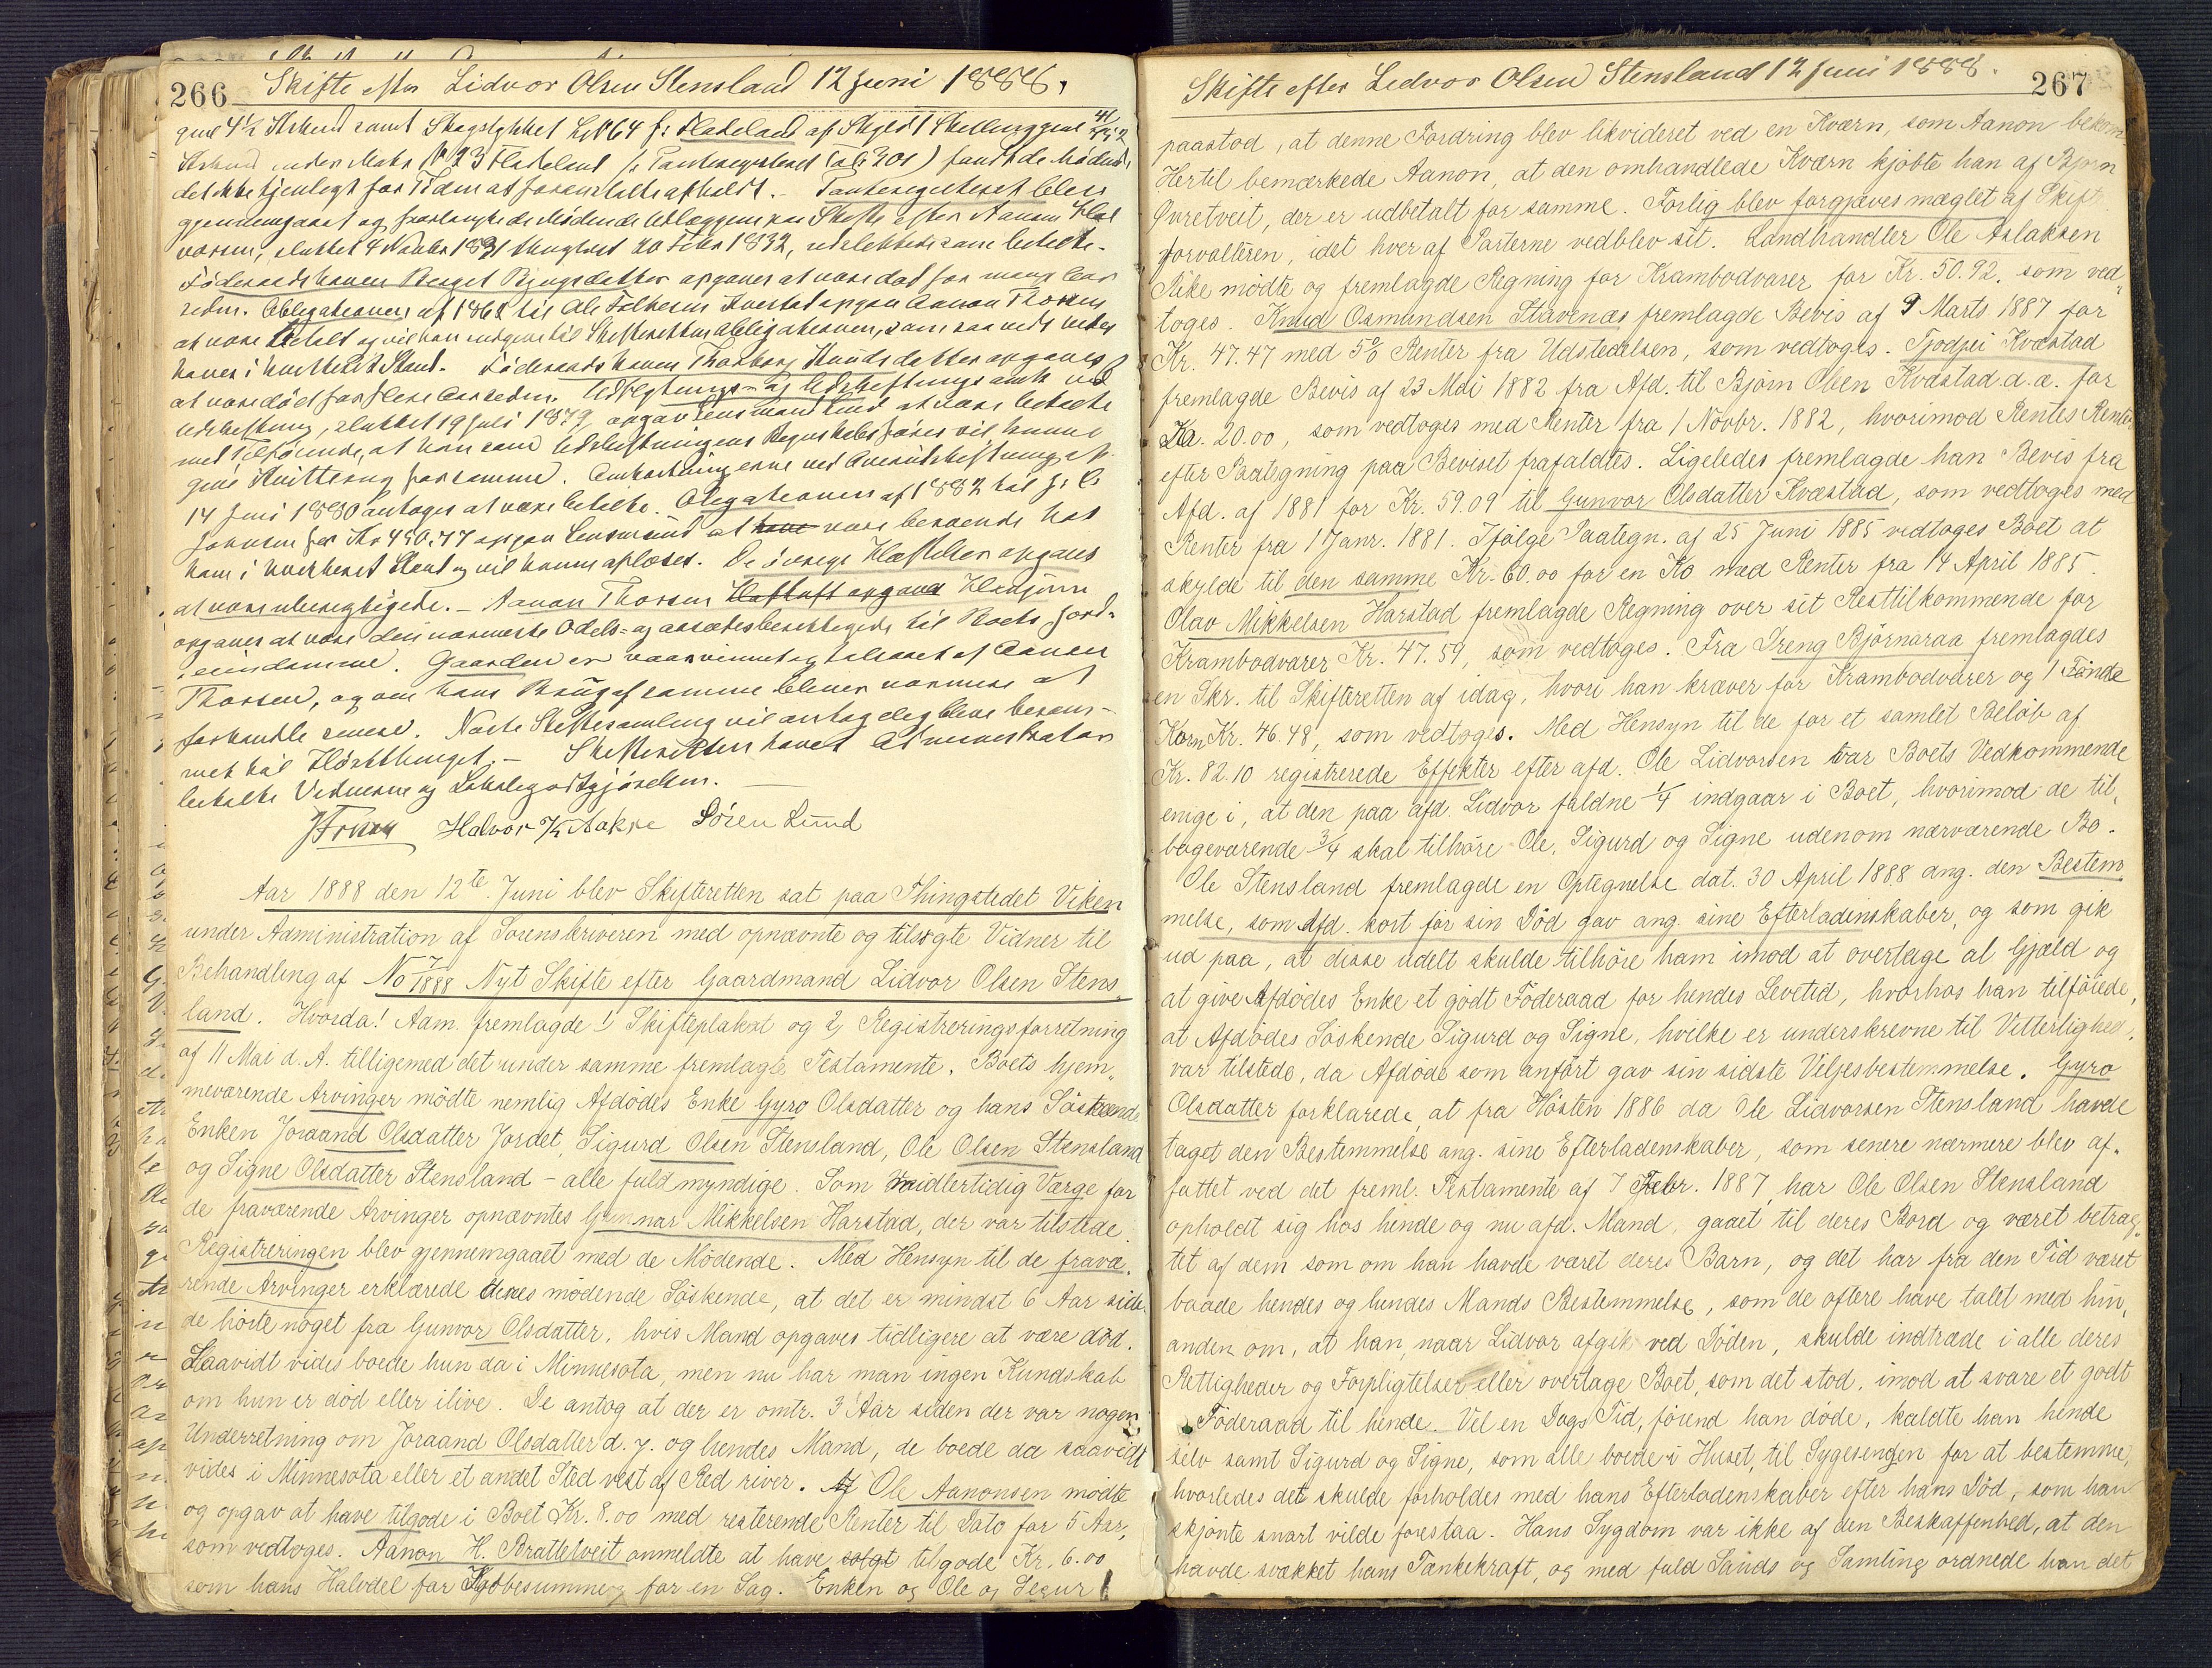 266
Skifte efter Lidvor Olsen Stensland 12 Juni 1888.
det ikke tjenligt for Tiden at foranstalte afholdt. - Panteregisteret blev
gjennemgaaet og
Føderaadskonen Berget opgaves at være død for mange Aar
siden. Obligationen af 1868 til Ole opgav Aanon Thorsen
at være betalt og vil han indgive til Skifteretten Obligationen, som
haves i kvitteret Stand. Føderaadskonen Thorborg Knudsdatter opgaves
at være død for flere Aar siden. Udskiftningsomk. ved
Udskiftning, sluttet 19 Juli 1879, opgav Lensmand Lund at være betalte
med Tilføiende, at han som Udskiftningens Regnskabsfører vil kunne
give Kvittering for samme. Omkostningerne ved
14 Juni 1880 antages at være betalte. Obligationen af 1882 til
Johnsen for Kr 450.77 opgav Lensmand at være beroende hos
ham i kvitteret Stand og vil kunne aflæses. De øvrige Hæftelser opgaves
at være - Aanon Thorsen
opgaves at være den nærmeste Odels- og aasædesberettigede til Boets Jord-
eiendomme. Gaarden er vaarvunnet og tilsaaet af Aanon
Thorsen, og om hans Brug af samme blev nærmere at
forhandle senere. Næste Skiftesamling vil antagelig blive beram-
met til Høstthinget. - Skifterettens Administrator
betalte Vidnerne og Lokalegodtgjørelsen.
Halvor Aakre Søren Lund
Aar 1888 den 12te Juni blev Skifteretten sat paa Thingstedet Viken
under Administration af Sorenskriveren med opnævnte og tilsagte Vidner til
Behandling af No 7/1888 Nyt Skifte efter Gaardmand Lidvor Olsen Stens-
land. Hvorda! Adm. fremlagde 1 Skifteplakat og 2, Registreringsforretning
af 11 Mai d. A. tilligemed det under samme fremlagte Testamente. Boets hjem-
meværende Arvinger mødte nemlig Afdødes Enke Gyro Olsdatter og hans Søskende
Enken Joraand Olsdatter Jordet, Sigurd Olsen Stensland, Ole Olsen Stensland
og Signe Olsdatter Stensland - alle fuldmyndige. Som midlertidig Værge for
de fraværende Arvinger opnævntes Gunnar Mikkelsen Harstad, der var tilstede.
Registreringen blev gjennemgaaet med de Mødende. Med Hensyn til de fravæ-
rende Arvinger erklærede deres mødende Søskende, at det er mindst 6 Aar siden
de hørte noget fra Gunvor Olsdatter, hvis Mand opgaves tidligere at være død.
Saavidt vides boede hun da i Minnesota, men nu har man ingen Kundskab
om hun er død eller ilive. De antog at der er omtr. 3 Aar siden der var nogen
Underretning om Joraand Olsdatter d. y. og hendes Mand, de boede da saavidt
vides i Minnesota eller et andet Sted vest af Red river. Ole Aanonsen mødte
og opgav at have tilgode i Boet Kr. 8.00 med resterende Renter til Dato for 5 Aar,
som vedtoges. Aanon H. Brattelveit anmeldte at have solgt tilgode Kr. 6.00
som hans Halvdel for Kjøbesummen for en Sag. Enken og Ole og Sigur
267
Skifte efter Lidvor Olsen Stensland 12 Juni 1888.
paastod, at denne Fordring blev likvideret ved en Kværn, som Aanon bekom
Hertil bemærkede Aanon, at den omhandlede Kværn kjøbte han af Bjørn
Øvretveit, der er udbetalt for samme. Forlig blev forgjæves mæglet af Skifte
forvalteren, idet hver af Parterne vedblev sit. Landhandler Ole Aslaksen
Rike mødte og fremlagde Regning for Krambodvarer for Kr. 50.92, som ved-
toges. Knud Osmundsen Stavenæs fremlagde Bevis af 9 Marts 1887 for
Kr. 47.47 med 5% Renter fra Udstedelsen, som vedtoges. Tjodgei Kvæstad
fremlagde Bevis af 23 Mai 1882 fra Afd. til Bjørn Olsen Kvæstad d.æ. for
Kr. 20.00, som vedtoges med Renter fra 1 Novbr. 1882, hvorimod Rentes Renter
efter Paategning paa Beviset frafaldtes. Ligeledes fremlagde han Bevis fra
Afd. af 1881 for Kr. 59.09 til Gunvor Olsdatter Kvæstad, som vedtoges med
Renter fra 1 Janr. 1881. Ifølge Paategn. af 25 Juni 1885 vedtoges Boet at
skylde til den samme Kr. 60.00 for en Ko med Renter fra 14 April 1885.
Olav Mikkelsen Harstad fremlagde Regning over sit Resttilkommende for
Krambodvarer Kr. 47.59, som vedtoges. Fra Dreng Bjørnaraa fremlagdes
en Skr. til Skifteretten af idag, hvori han kræver for Krambodvarer og 1 Tønde
Korn Kr. 46.48, som vedtoges. Med Hensyn til de for et samlet Beløb af
Kr. 82.10 registrerede Effekter efter afd. Ole Lidvorsen var Boets Vedkommende
enige i, at den paa afd. Lidvor faldne 1/4 indgaar i Boet, hvorimod de til-
bageværende 3/4 skal tilhøre Ole, Sigurd og Signe udenom nærværende Bo.
Ole Stensland fremlagde en Optegnelse dat. 30 April 1888 ang. den Bestem
melse, som Afd. kort før sin Død gav ang. sine Efterladenskaber, og som gik
ud paa, at disse udelt skulde tilhøre ham imod at overtage al Gjæld og
at give Afdødes Enke et godt Føderaad for hendes Levetid, hvorhos han tilføiede,
at Afdødes Søskende Sigurd og Signe, hvilke er underskrevne til Vitterlighed,
var tilstede, da Afdøde som anført gav sin sidste Viljesbestemmelse. Gyro
Olsdatter forklarede, at fra Høsten 1886 da Ole Lidvorsen Stensland havde
taget den Bestemmelse ang. sine Efterladenskaber, som senere nærmere blev af-
fattet ved det freml. Testamente af 7 Febr. 1887, har Ole Olsen Stensland
opholdt sig hos hende og nu afd. Mand, gaaet til deres Bord og været betrag-
tet af dem som om han havde været deres Barn, og det har fra den Tid været
baade hendes og hendes Mands Bestemmelse, som de oftere have talet med hin-
anden om, at han, naar Lidvor afgik ved Døden, skulde indtræde i alle deres
Rettigheder og Forpligtelser eller overtage Boet, som det stod, imod at svare et godt
Føderaad til hende. Vel en Dags Tid, førend han døde, kaldte han hende
selv samt Sigurd og Signe, som alle boede i Huset, til Sygesengen for at bestemme,
hvorledes det skulde forholdes med hans Efterladenskaber efter hans Død, som han
skjønte snart vilde forestaa. Hans Sygdom var ikke af den Beskaffenhed, at den
havde svækket hans Tankekraft, og med fuld Sands og Samling ordnede han det